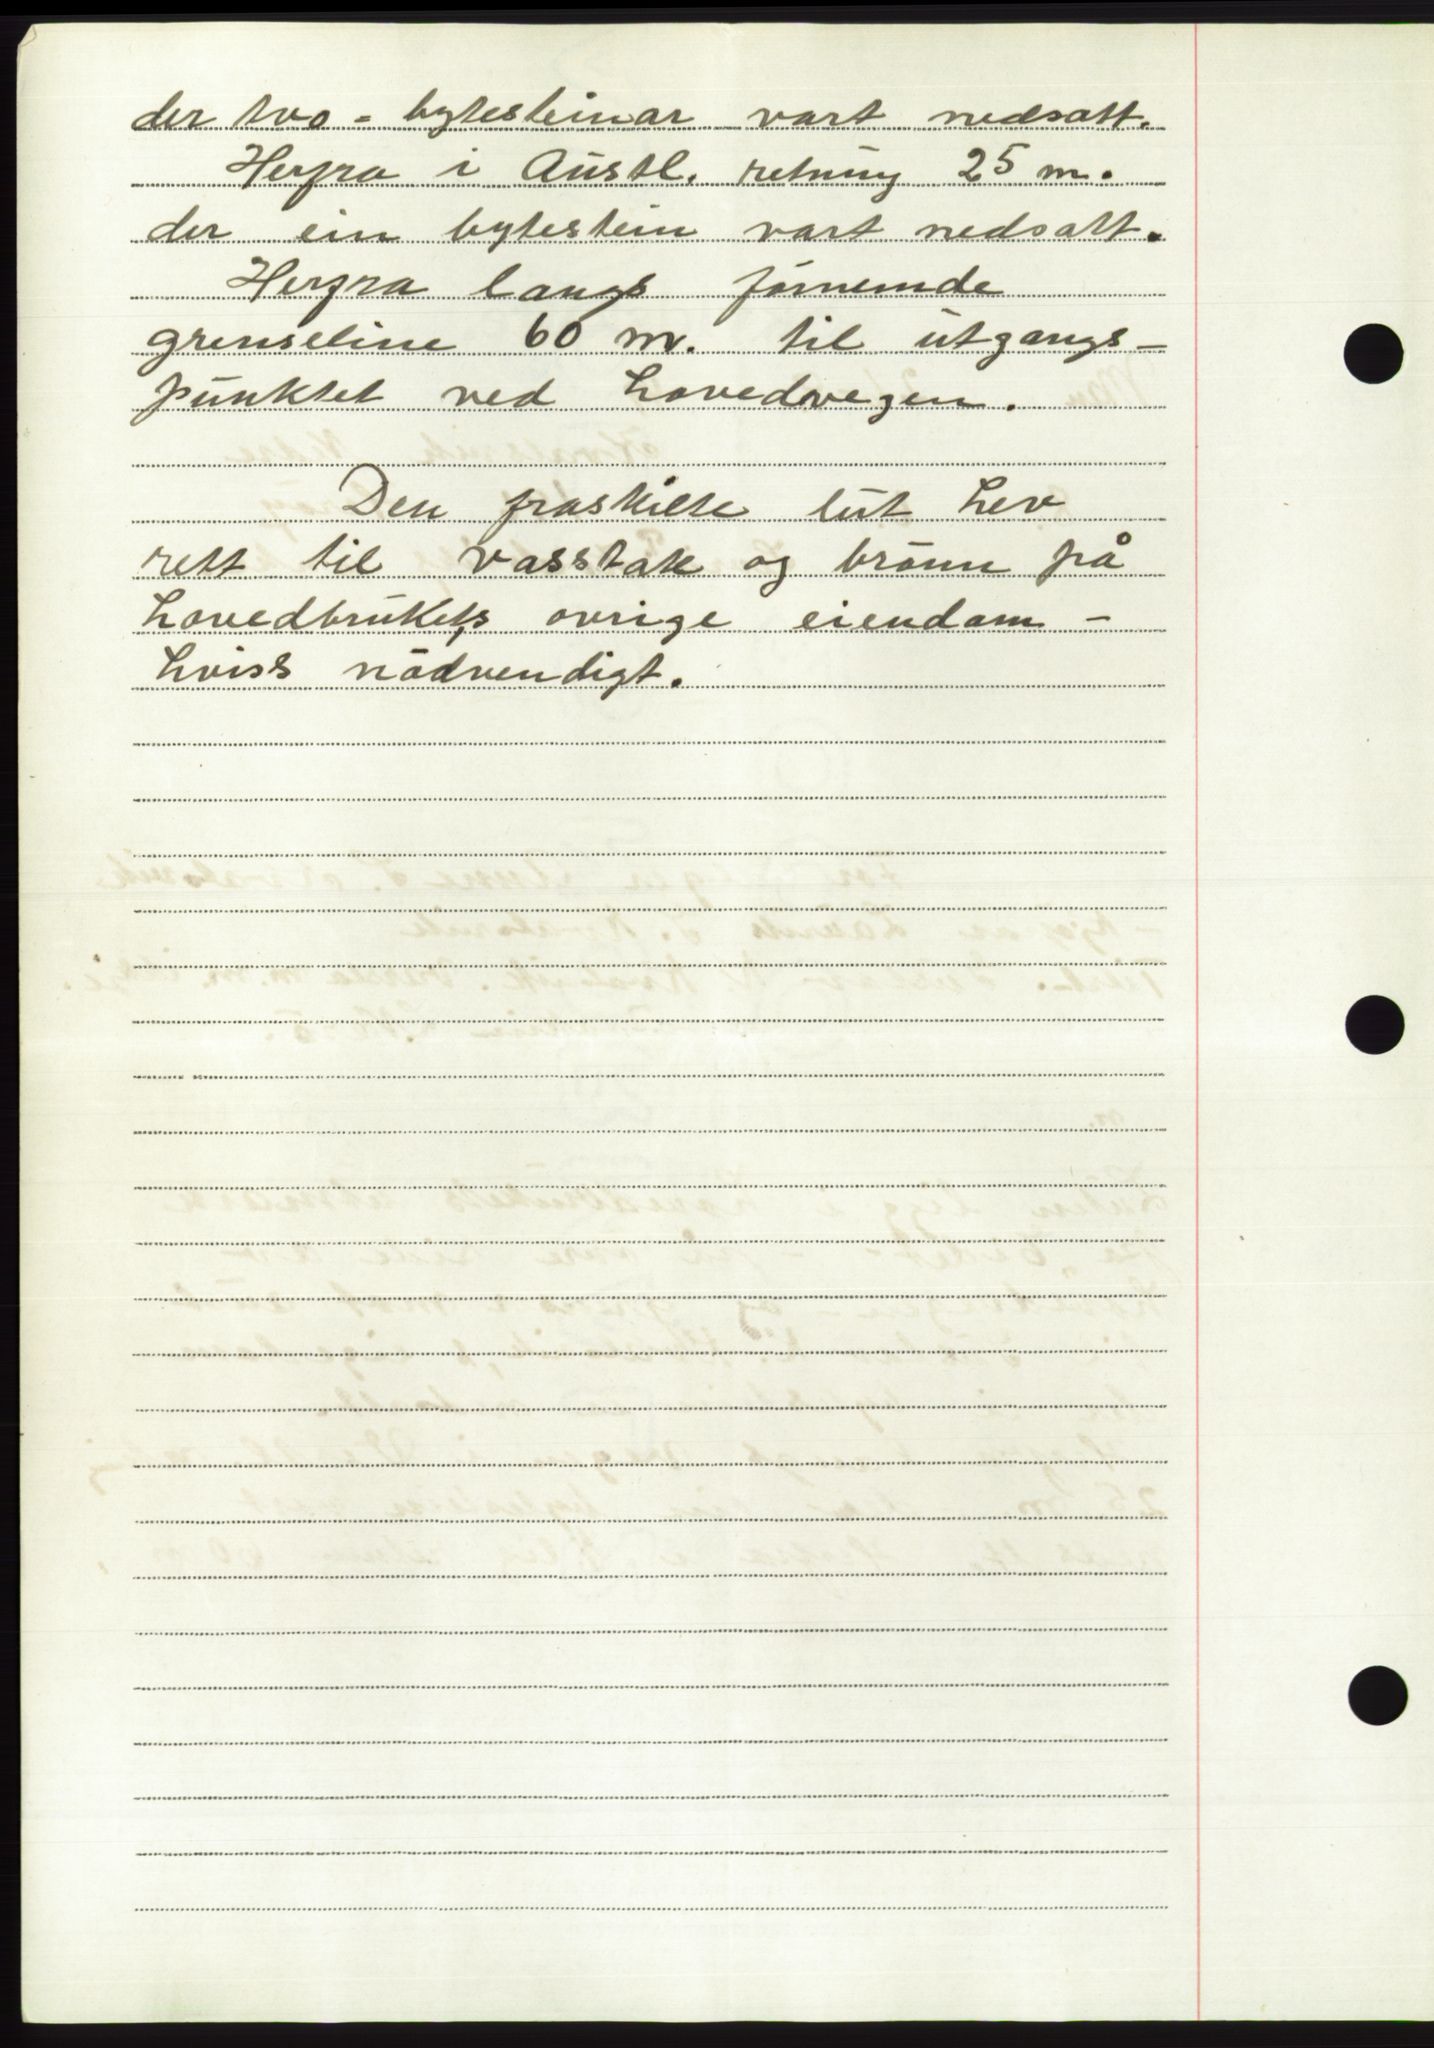 der tvo - bytesteinar vart nedsatt.
Herfra i Austl. retning 25 m.
der ein bytestein vart nedsatt.
Herfra langs fornemnde
grenseline 60 m. til utgangs-
punktet ved hovedvegen.
Den fraskilte lut hev
rett til vasstak og brönn på
hovedbrukets ovrige eiendom -
hviss nödvendigt.